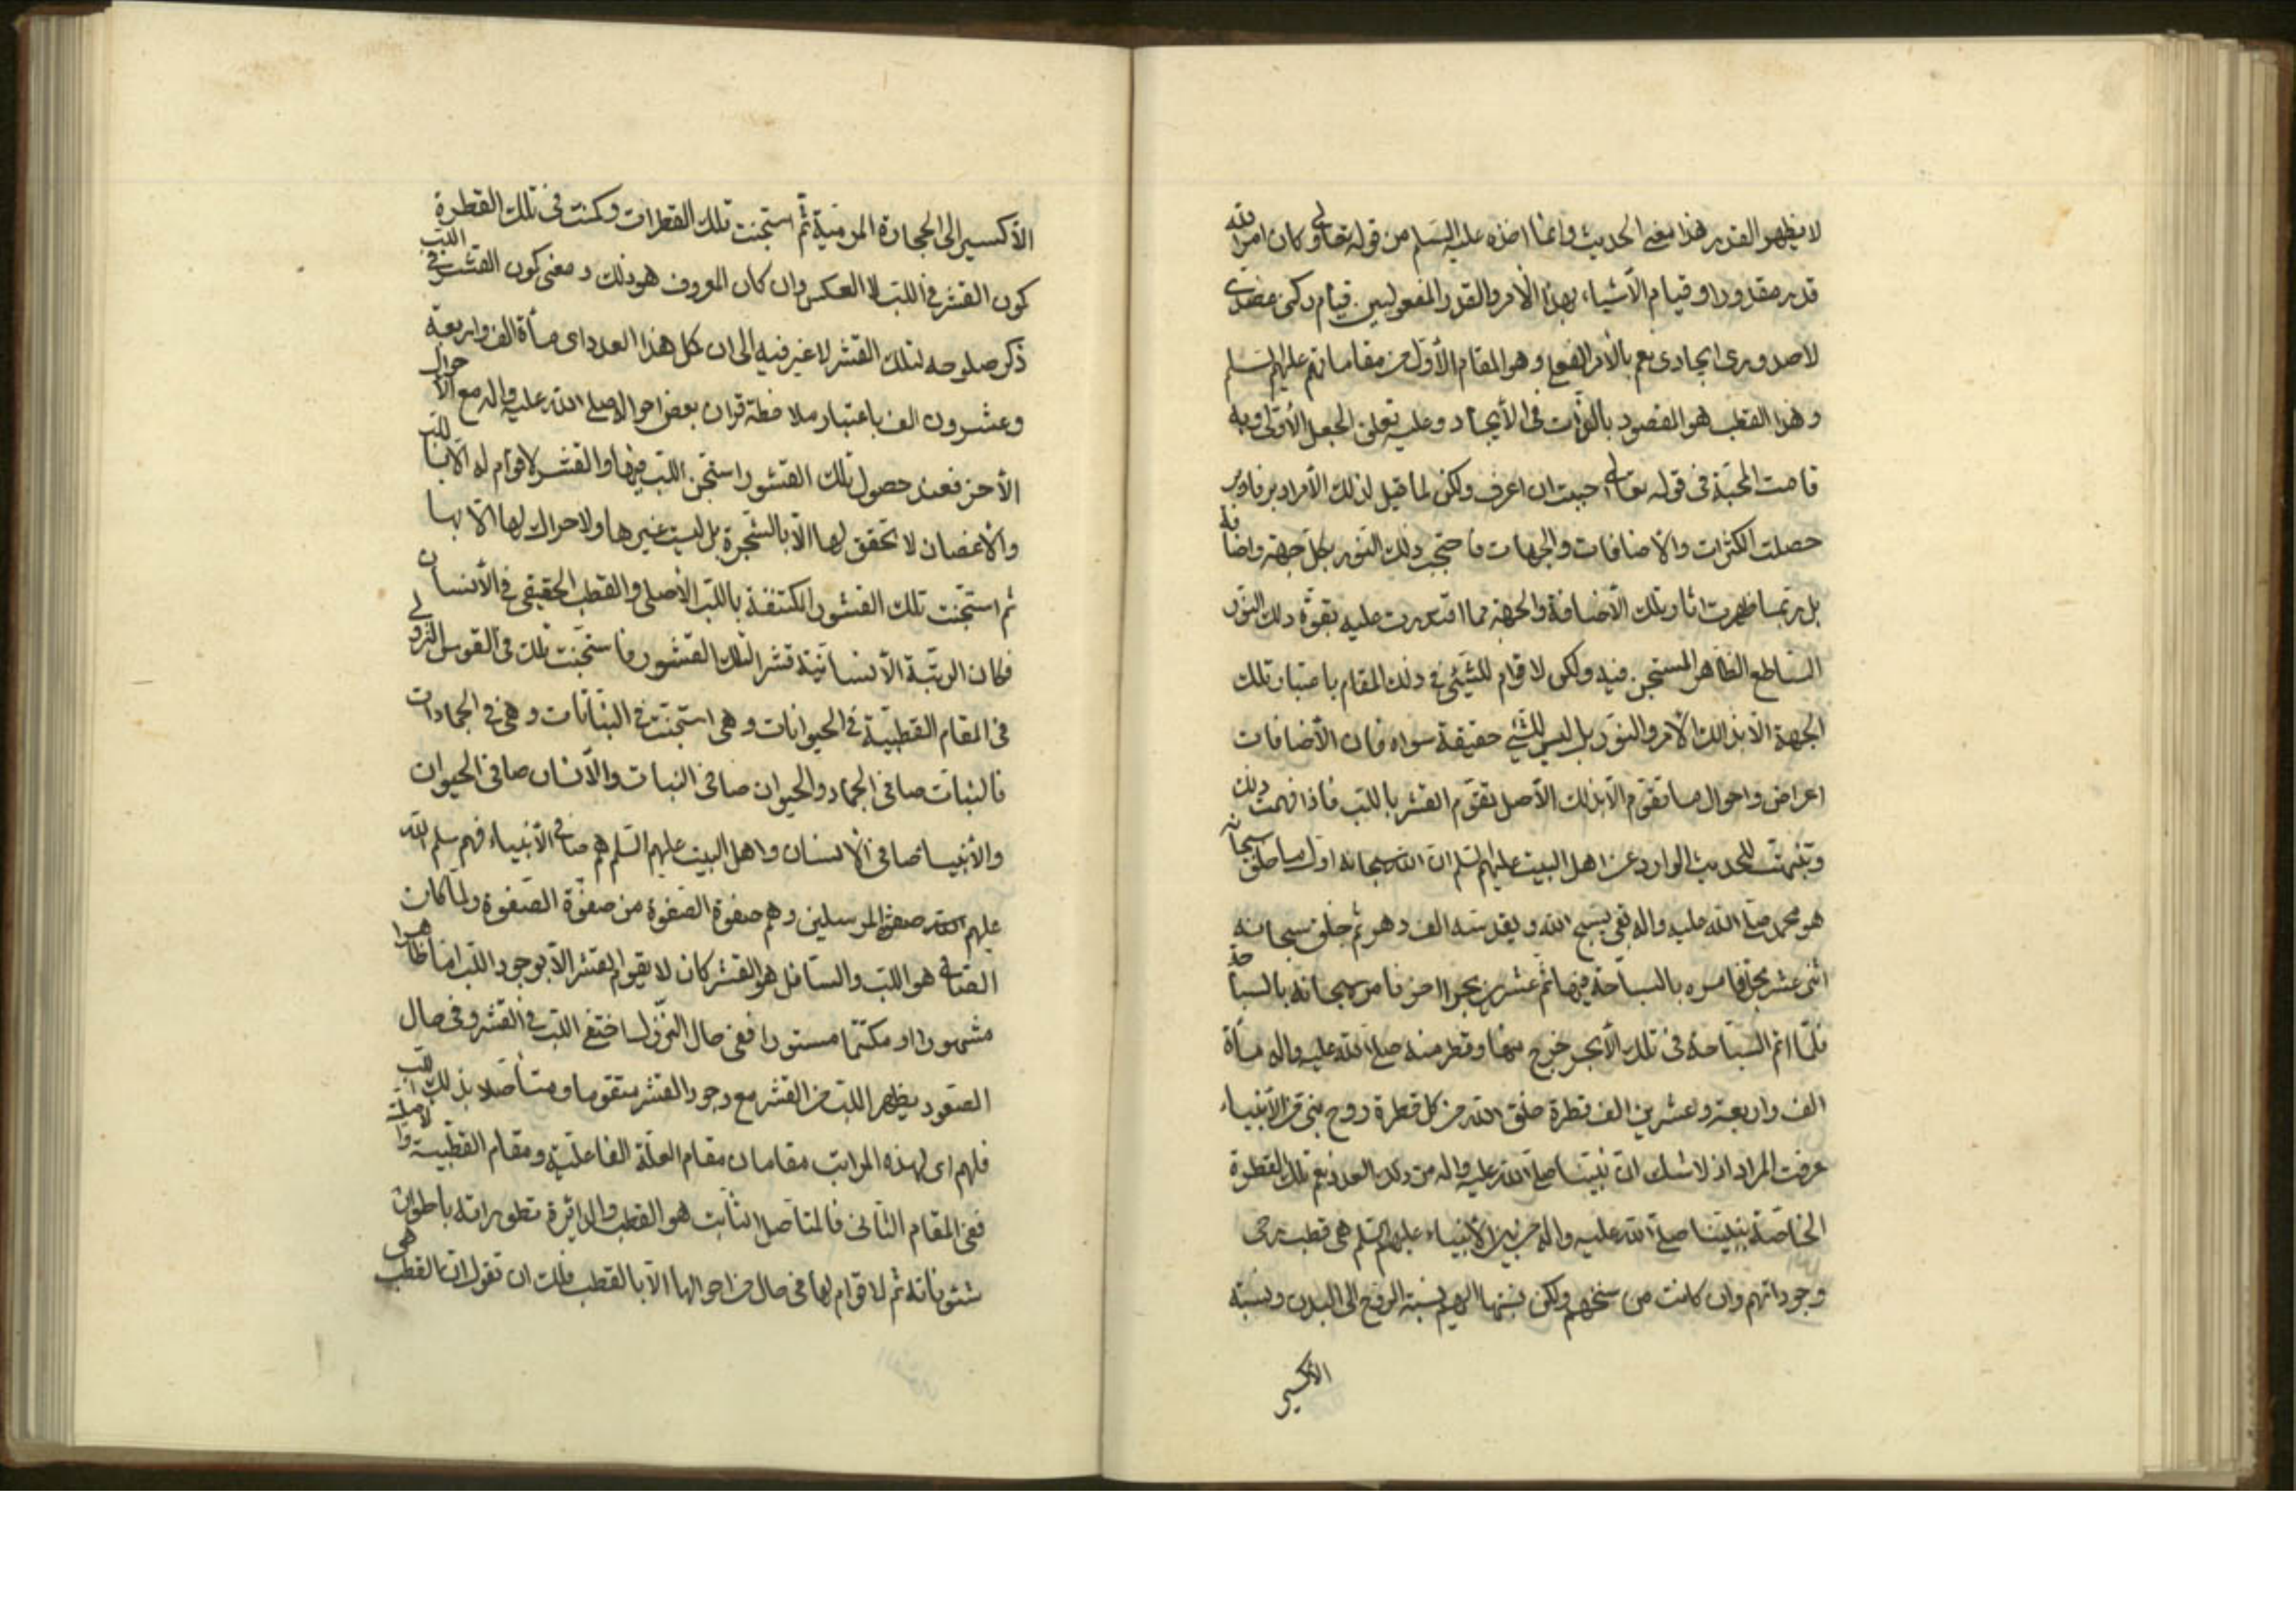 لا يظهر القدر هذا معنى الحديث وانما اخذه عليه السلم من قوله تعالى وكان امر الله
قدرا مقدورا وقيام الأشياء بهذا الأمر والقدر المفعوليين قيام ركنى عضدى
لا صدورى ايجادى نعم بالأمر الفعلى وهو المقام الأول من مقاماتهم عليهم السلم
وهذا القطب هو المقصود بالذات فى الأيجاد وعليه تعلق الجعل الأولى وبه
قامت المحبة فى قوله تعالى احببت ان اعرف ولكن لما قيل لذلك الأمر ادبر فادبر
حصلت الكثرات والأضافات والجهات فاحتجب ذلك النور بكل جهة واضافة
بل ربما ظهرت اثار تلك الأضافة والجهة مما اقتدرت عليه بقوة ذلك النور
الساطع الظاهر المستجن فيه ولكن لا قوام للشيئ فى ذلك المقام باعتبار تلك
الجهة الا بذلك الأمر والنور بل ليس للشيئ حقيقة سواه فان الأضافات
اعراض واحوال ما تقوم الا بذلك الأصل تقوم القشر باللب فاذا فهمت ذلك
وتفهمت للحديث الوارد عن اهل البيت عليهم السلم ان الله سبحانه اول ما خلق سبحانه
هو محمد صلى الله عليه واله بقى يسبح الله ويقدسه الف دهر ثم خلق سبحانه
اثنى عشر بحرا فامره بالسباحة فيها ثم عشرين بحرا اخر فامره سبحانه بالسباحة
فلما اتم السباحة فى تلك الأبحر خرج منها وقطر منه صلى الله عليه واله مأة
الف واربعة وعشرين الف قطرة خلق الله من كل قطرة روح نبى من الأنبياء
عرفت المراد اذ لا شك ان نبينا صلى الله عليه واله من ذلك العدد نعم تلك القطرة
الخاصة بنبينا صلى الله عليه واله من بين الأنبياء عليهم السلم هى قطب رحى
وجوداتهم وان كانت من سنخهم ولكن نسبتها اليهم نسبة الروح الى البدن ونسبة
الأكسير
الأكسير الى الحجارة المرميّة ثم استجنت تلك القطرات وكمنت فى تلك القطرة
كون القشر فى اللب لا العكس وان كان المعروف هو ذلك ومعنى كون القشر فى اللب
ذكر صلوحه لتلك القشر لا غير فيه الى ان كمل هذا العدد اى مأة الف واربعة
وعشرون الف باعتبار ملاحظة قران بعض احواله صلى الله عليه واله مع الأحوال
الأخر فعند حصول تلك القشور استجن اللب فيها والقشر لا قوام له الا باللب
والأغصان لا تحقق لها الا بالشجرة بل ليست غيرها ولا حراك لها الا بها
ثم استجنت تلك القشور المكتنفة باللب الأصلى والقطب الحقيقى فى الأنسان
فكان الرتبة الأنسانية قشرا لتلك القشور فاستجنت تلك فى القوس النزولى
فى المقام القطبية فى الحيوانات وهى استجنت فى النباتات وهى فى الجمادات
فالنبات صافى الجماد والحيوان صافى النبات والأنسان صافى الحيوان
والأنبياء صافى الأنسان واهل البيت عليهم السلم هم صافى الأنبياء فهم سلم الله
عليهم صفوة المرسلين وهم صفوة الصفوة من صفوة الصفوة ولما كان
الصافى هو اللب والسافل هو القشر كان لا يقوم القشر الا بوجود اللب اما ظاهرا
مشهورا او مكتتما مستورا ففى حال النزول اختفى اللب فى القشر وفى حال
الصعود يظهر اللب من القشر مع وجود القشر متقوما ومتأصلا بذلك اللب
فلهم اى لهذه المراتب مقامان مقام العلة الفاعلية ومقام القطبية
ففى المقام الثانى فالمتأصل الثابت هو القطب والدائرة تطوراته باطوار
شئوناته ثم لا قوام لها فى حال من احوالها الا بالقطب فلك ان تقول ان القطب هى